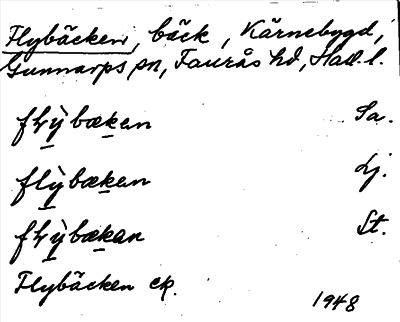 Flybäcken, bäck, Kärnebygd,
Gunnarps sn, Faurås hd, Hall. l.
flỳbækan Sa.
flỳbækan Lj.
flỳbækan St.
Flybäcken ek.
1948